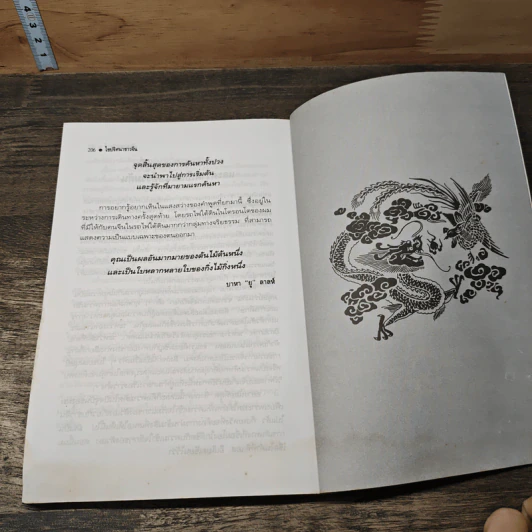 4 3 2 1
206 ● ไขปริศนาชาวจีน
จุดสิ้นสุดของการค้นหาทั้งปวง
จะนำพาไปสู่การเริ่มต้น
และรู้จักที่มายามแรกค้นหา
การอยากรู้อยากเห็นในแสงสว่างของคำพูดที่ยกมานี้ ซึ่งอยู่ใน
ระหว่างการเดินทางครั้งสุดท้าย โดยรถไฟใต้ดินในโตรอนโตของผม
ที่มีให้กับคนจีนในรถไฟใต้ดินมากกว่ากลุ่มทางจริยธรรม ที่สามารถ
แสดงความเป็นแบบเฉพาะของตนออกมา
คุณเป็นผลอันมากมายของต้นไม้ต้นหนึ่ง
และเป็นใบหลากหลายใบของกิ่งไม้กิ่งหนึ่ง
บาหา "ยู" ลาลห์